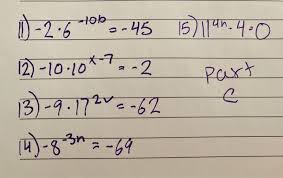 11) -2·6^-10b = -45
15) 11^4n - 4 = 0
12) -10·10^x-7 = -2
Part
C
13) -9·17^2v = -62
14) -8^-3n = -69